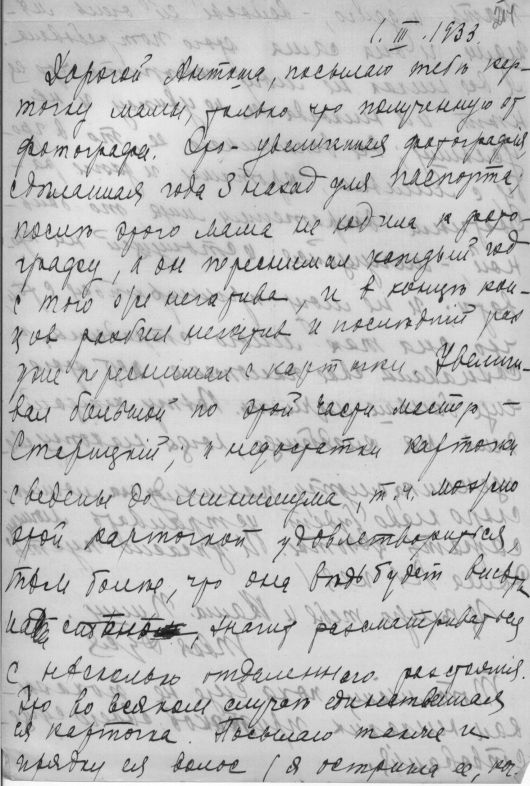 1. III. 1933
Дорогой Антоша, посылаю тебѣ кар-
точку мамы, только что полученную от
фотографа. Это - увеличенная фотография
сдѣланная года 3 назад для паспорта;
послѣ этого мама не ходила к фото-
графу, а он переснимал каждый год
с того же негатива, и в концѣ кон-
цов разбил негатив и послѣдний раз
уже переснимал с карточки. Увеличи-
вал большой по этой части мастер -
Старицкий, и недостатки карточки
сведены до минимума, т.ч. можно
этой карточкой удовлетвориться
тѣм болѣе, что она вѣдь будет висѣть
на, значит разсматриваться
с нѣсколько отдаленнаго разстояния.
Это во всяком случаѣ единственная
ея карточка. Посылаю также и
прядку ея волос (я остригла ее, ког-